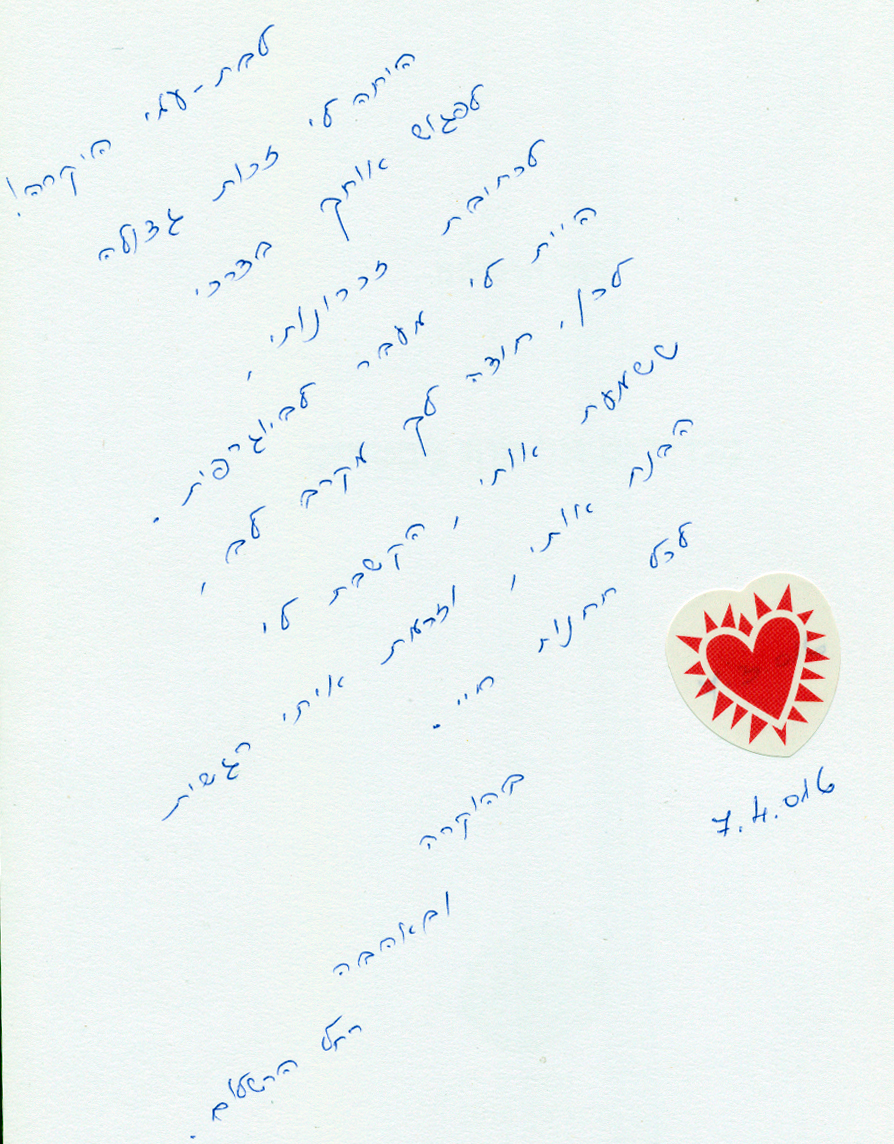 לבת-עמי היקרה!
היתה לי זכות גדולה
לפגוש אותך בדרכי
לכתיבת זכרונותי,
היית לי מעבר לביוגרפית.
לכן, תודה לך מקרב לב,
ששמעת אותי, הקשבת לי
הבנת אותי, וזרמת איתי רגשית
לכל תחנות חיי.
בהוקרה
ובאהבה
רחל
7.4.016